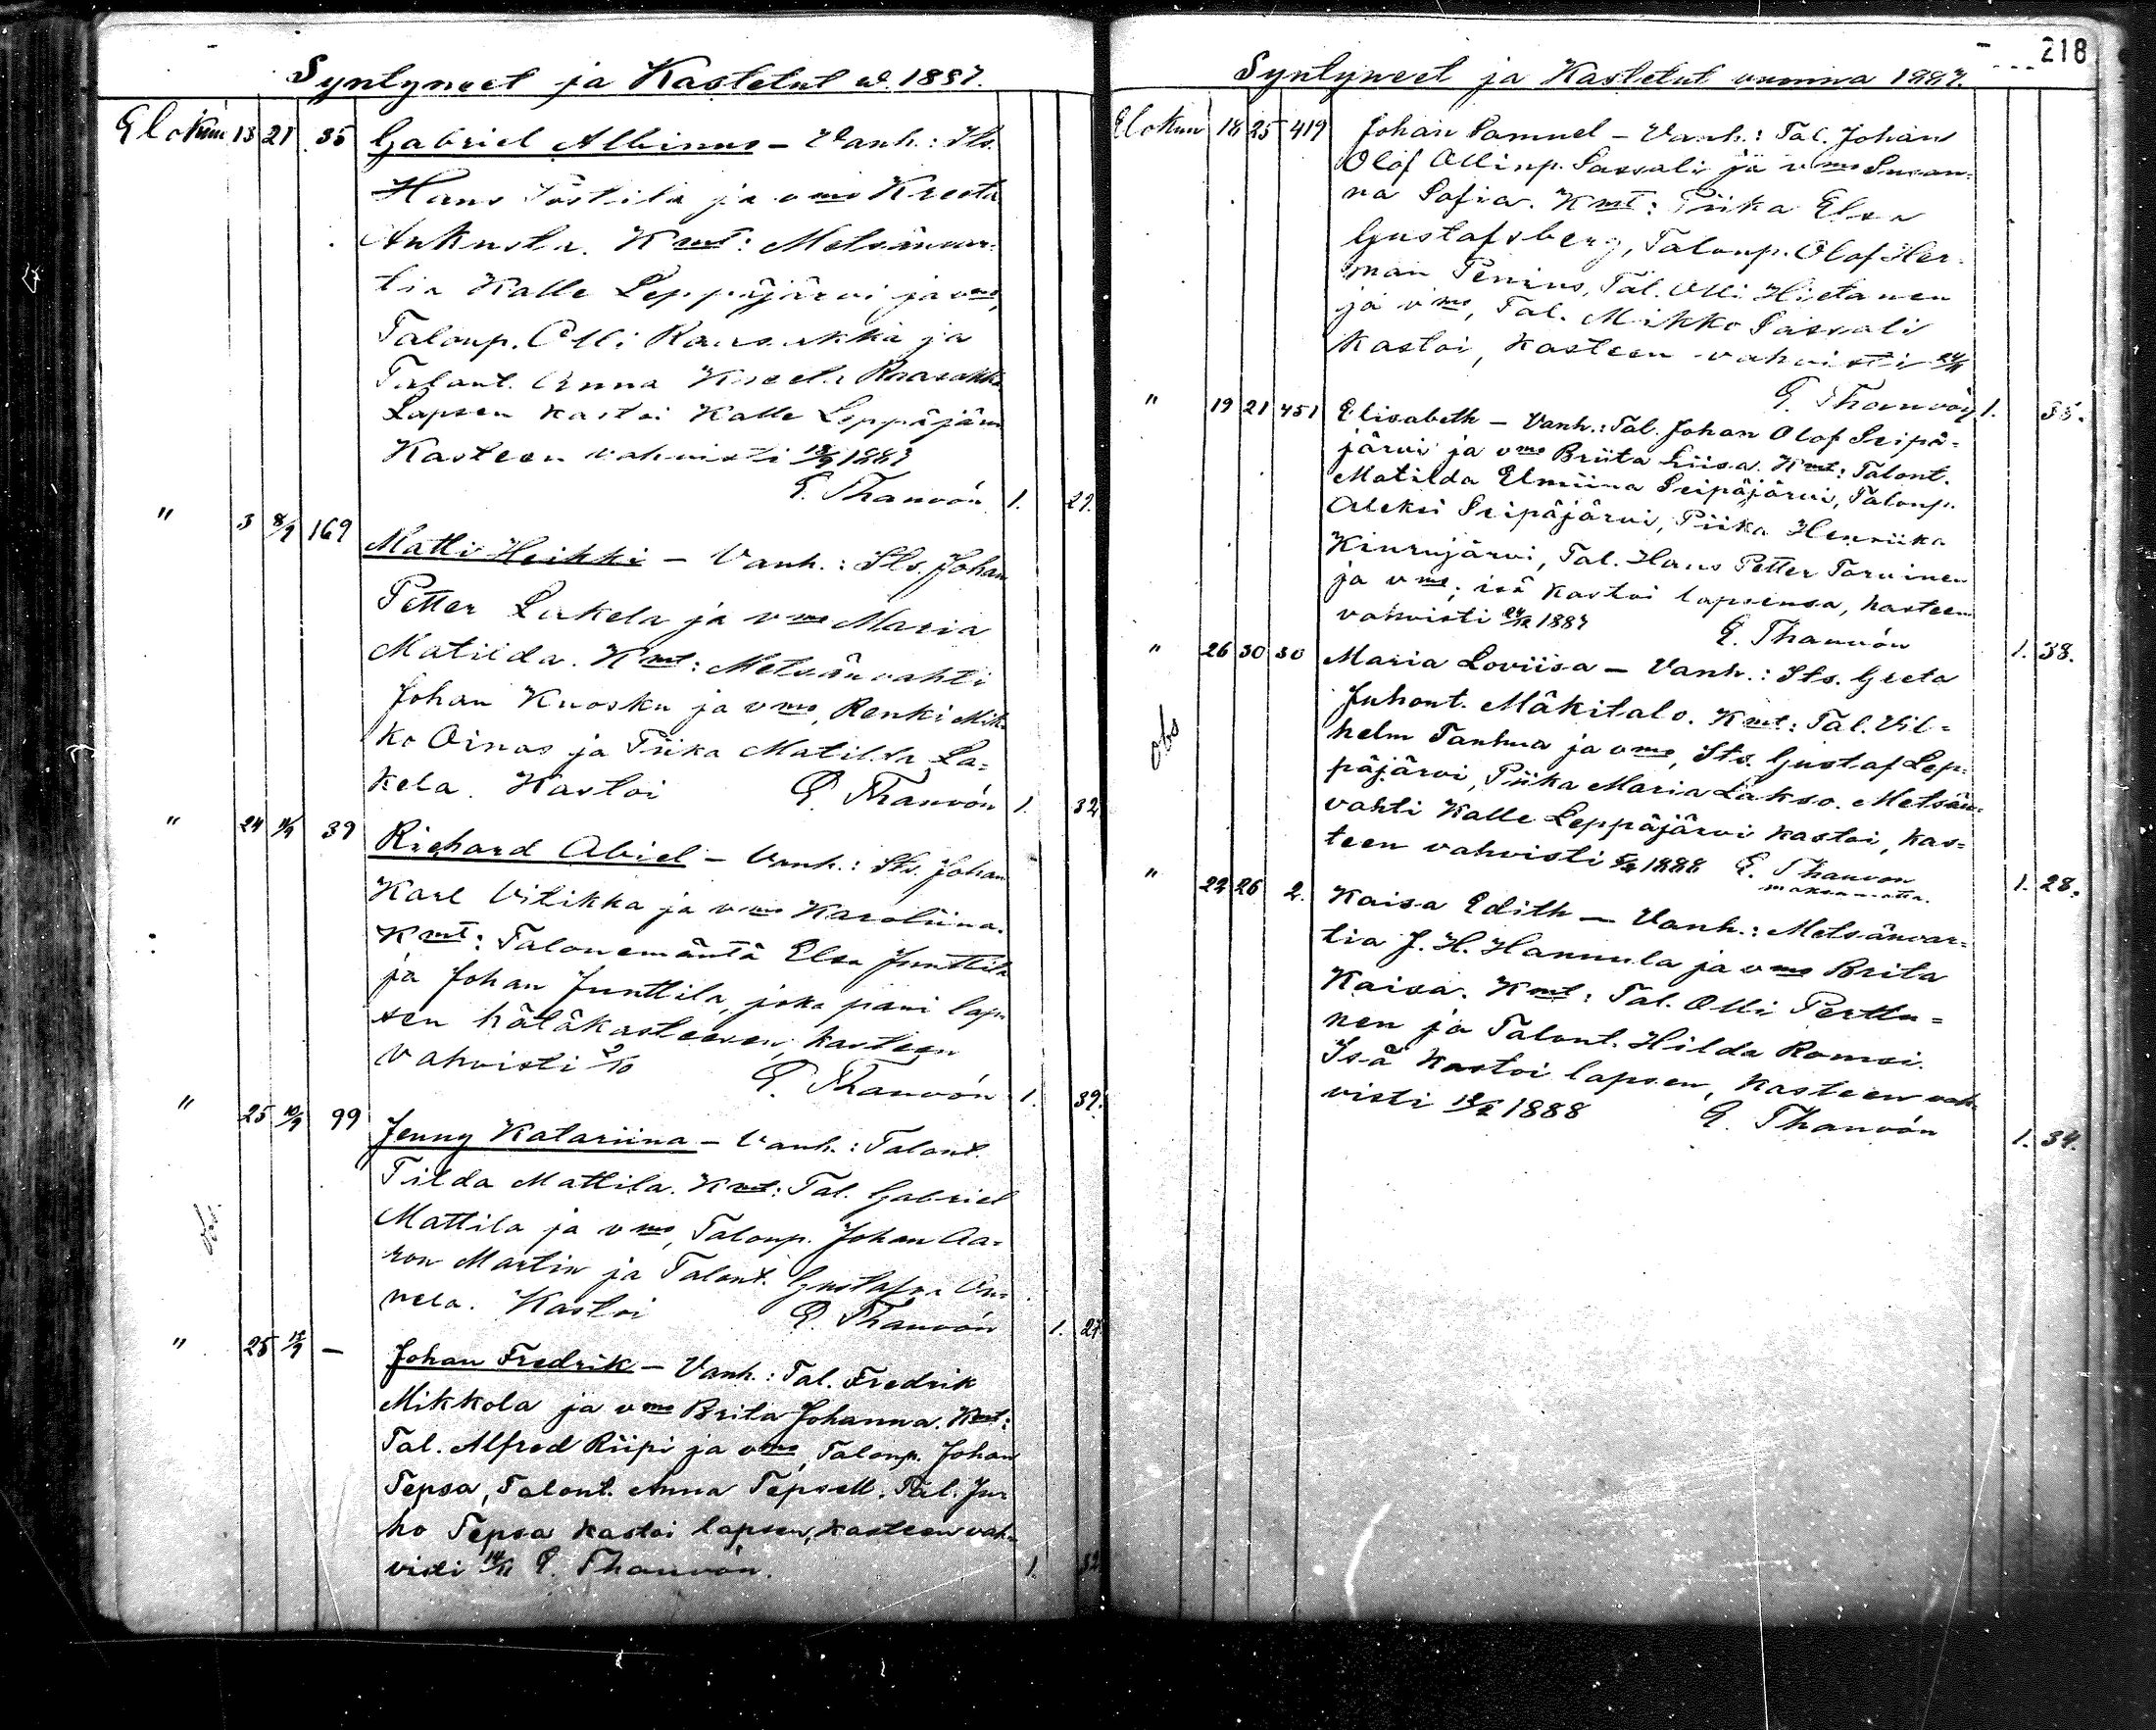 Syntyneet ja Kastetut v. 1887.
Elokuu 13 21 35 Gabriel Albinus – Vanh.: Its.
Hans Postila ja vmo Kreeta
Aukusta. Kmt: Metsänvar-
tia Kalle Leppäjärvi ja vmo,
Taloup. Olli Raasakka ja
Talont. Anna Kreeta Raasakka
Lapsen kastoi Kalle Leppäjärvi
Kasteen vahvisti 1887
E. Thauvón 1. 29.
" 3 8/9 169 Matti Heikki – Vanh.: Its. Johan
Petter Lakela ja vmo Maria
Matilda. Kmt: Metsänvahti
Johan Kuosku ja vmo, Renki Mik-
ko Oinas ja Piika Matilda La=
kela. Kastoi E. Thauvón 1. 32
" 24 11/9 39 Richard Abiel – Vanh.: Its. Johan
Karl Vitikka ja vmo Karoliina.
Kmt: Talonemäntä Elsa Junttila
ja Johan Junttila, joka pani lap-
sen hätäkasteesen, kasteen
vahvisti 2/10 E. Thauvón 1. 39.
" 25 10/9 99 Jenny Katariina – Vanh.: Talont.
Tilda Mattila. Kmt: Tal. Gabriel
Mattila ja vmo, Taloup. Johan Aa=
ron Martin ja Talont. Gustafva
nela. Kastoi E. Thauvón 1. 27
" 25 – Johan Fredrik – Vanh.: Tal. Fredrik
Mikkola ja vmo Brita Johanna. Kmt:
Tal. Alfred Riipi ja vmo, Taloup. Johan
Tepsa, Talont. Anna Tepsell. Tal. Ju=
ho Tepsa kastoi lapsen, kasteen vah=
visti 14/11 E. Thauvón. 1. 32
218
Syntyneet ja Kastetut vuonna 1887.
Elokuu 18 25 419 Johan Samuel – Vanh.: Tal. Johan
Olof Ollinp. Sassali ja vmo Susan=
na Sofia. Kmt: Piika Elsa
Gustafsberg, Taloup. Olof Her=
man Penius, Tal. Olli Hietanen
ja vmo, Tal. Mikko Sassali
kastoi, kasteen vahvisti 24/11
E. Thauvón 1. 35.
" 19 21 451 Elisabeth – Vanh.: Tal. Johan Olof Seipä=
järvi ja vmo Briita Liisa. Kmt: Talont.
Matilda Elmiina Seipäjärvi, Taloup.
Aleksi Seipäjärvi, Piika Henriika
Kinrujärvi, Tal. Hans Petter Torvinen
ja vmo; isä kastoi lapsensa, kasteen
vahvisti 1887 E. Thauvón 1. 38.
" 26 30 30 Maria Loviisa – Vanh.: Its. Greta
Juhont. Mäkitalo. Kmt: Tal. Vil=
obs helm Tanhua ja vmo, Its. Gustaf Lep=
päjärvi, Piika Maria Lakso. Metsän=
vahti Kalle Leppäjärvi kastoi, kas=
teen vahvisti 1888 E. Thauvon 1. 28.
maksamatta.
" 22 26 2. Kaisa Edith – Vanh.: Metsänvar=
tia J. H. Hannula ja vmo Brita
Kaisa. Kmt: Tal. Olli Perttu=
nen ja Talont. Hilda Romsi.
Isä kastoi lapsen, kasteen vah-
visti 1888 E. Thauvón 1. 34.